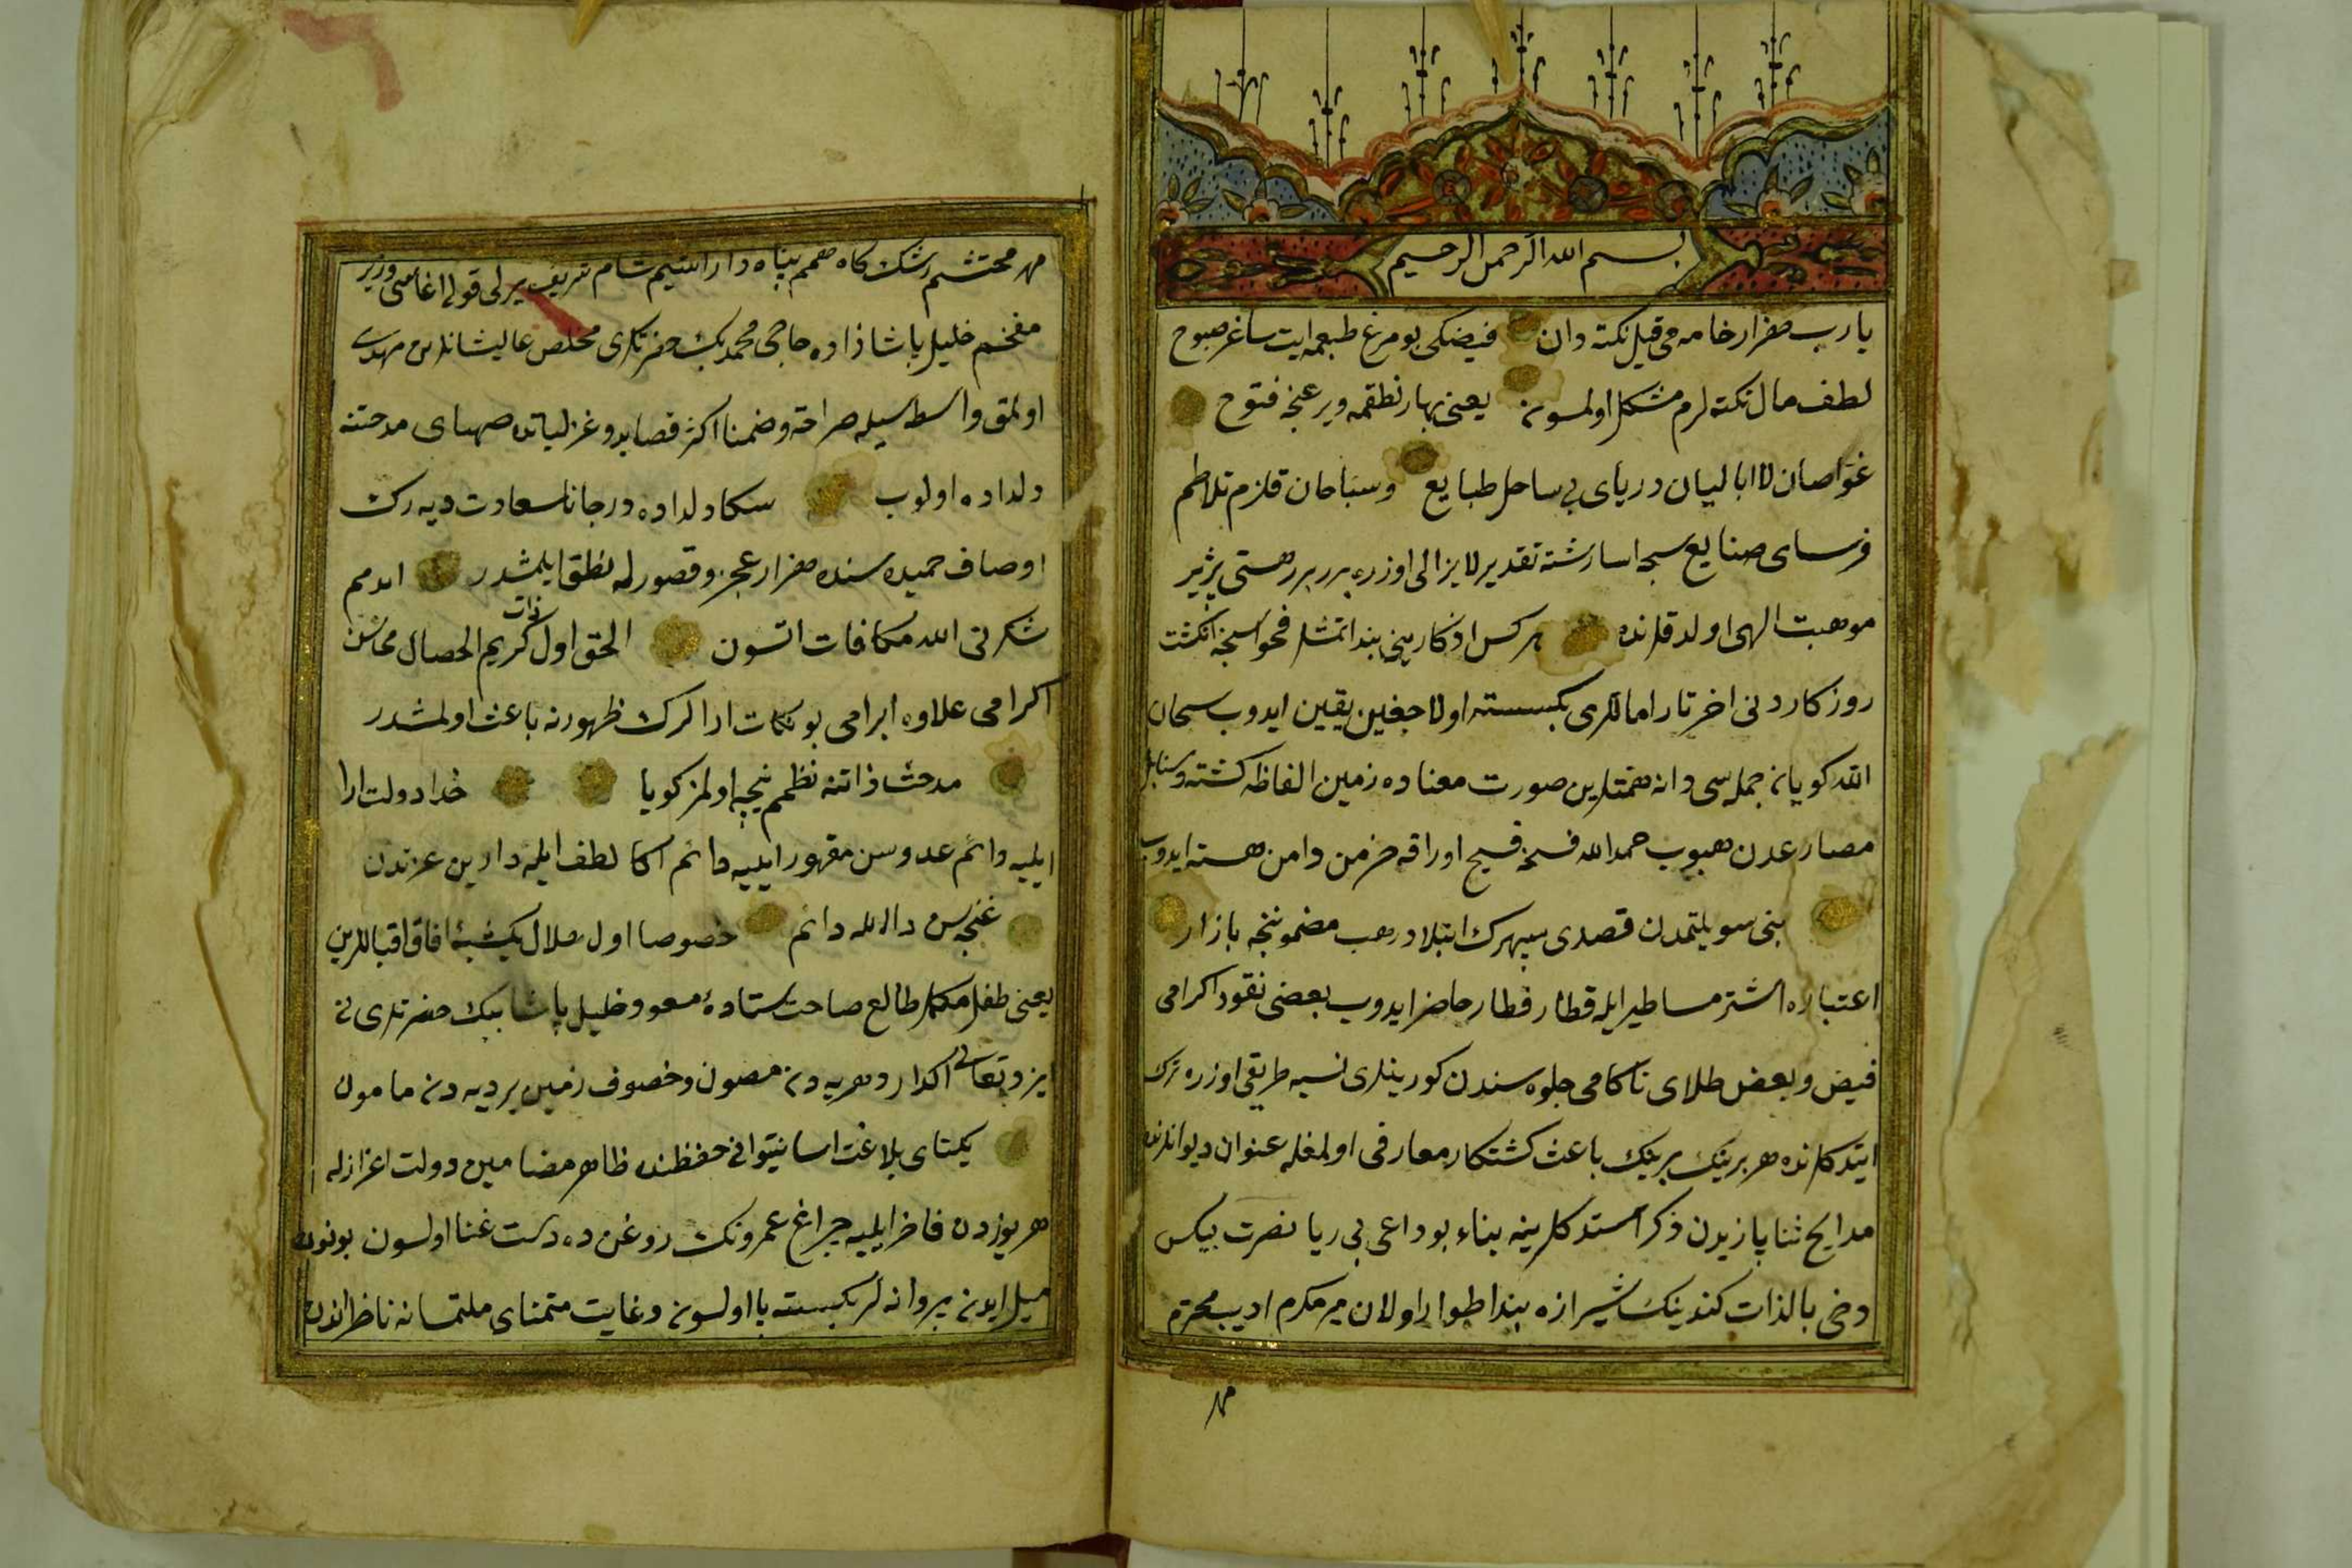 بسم الله الرحمن الرحيم
يا رب هزار خامه مى قيل نكته دان فيضكى بو مرغ طبعمه ايت ساغر صبوح
لطف مال نكته لرم مشكل اولمسون يعنى بهار نطقمه وير غنجه فتوح
غواصان لاابالیان دریای بی ساحل طبایع وسباحان قلزم تلاطم
فرسای صنایع سبحه اسا رشته تقدیر لایزالی اوزره برر برر هستی پژیر
موهبت الهی اولدقلرنده هرکس اونكارینی بند اتمش فحواسنجه انكشت
روزكاردنی اخر تار امالری بكسسته اولاجغین یقین ایدوب سبحان
الله كویا نه جمله سی دانه همتلرین صورت معناده زمین الفاظه كشته وسنابل
مصار عدن هبوب حمد الله فسخ فسیح اوراقه خرمن دامن هسته ایدوب
بنی سویلتمدن قصدی سپهرك ابتلادر هب مضموننجه بازار
اعتباره اشتر مساطیر ایله قطار قطار حاضر ایدوب بعضی نقود اكرامی
فیض وبعض طلای ناكامی جلوه سندن كورینلری نسیه طریقی اوزره ترك
ایتدكلرنده هر برینك برینك باعث كشتكار معارفی اولمغله عنوان دیوانلرنده
مدایح ثنا پازیدن ذكر استدكلرینه بناء بو داعی بی ریا نصرت بیكس
دخی بالذات كندینك شیرازه بند اطواری اولان میر مكرم ادیب محترم
مهر
مهر محتشم رشك كاه همم پناه دار النعیم شام شریف یرلی قولی اغاسی وزیر
مفخم خلیل پاشا زاده حاجی محمد بك حضرتلری مخلص عالیشانلرین مهدی
اولمق واسطه سیله صراحة وضمنا اكثر قصاید وغزلیاتده صهبای مدحتنه
دلداده اولوب سكا دلداده در جانا سعادت دیه رك
اوصاف حمیده سنده هزار عجز وقصور له نطق ایلمشدر ایدمم
شكرنی الله مكافات اتسون الحق اول ذات كریم الحصال محاسن
اكرامی علاوه ابرامی بو نكات ارالرك ظهورنه باعث اولمشدر
مدحت ذاتنه نظمم نیجه اولمز كویا خدا دولت ارا
ایلیه دائم عدوسن مقهور ایلیه دائم اكا لطف ایله دارین عزندن
غنجه سن دالله دائم خصوصا اول هلال یكشبۀ افاق اقباللرین
یعنی طفل مكمل طالع صاحت ستادۀ مسعود خلیل پاشا بیك حضرتلری نی
ایزد تعالی اكدار دهریه دن مصون وخصوف زمین بردیه دن مامون
یكتای بلاغت اسا نیتوانی حفظنده ظاهر مضامین دولت اعزازله
هر یوزدن فاخر ایلیه چراغ عمرونك روغن ده دست غنا اولسون بونون
میل ایدن پروانه لر بكسسته پا اولسون وغایت متمنای ملتمسانه ناظر اندن